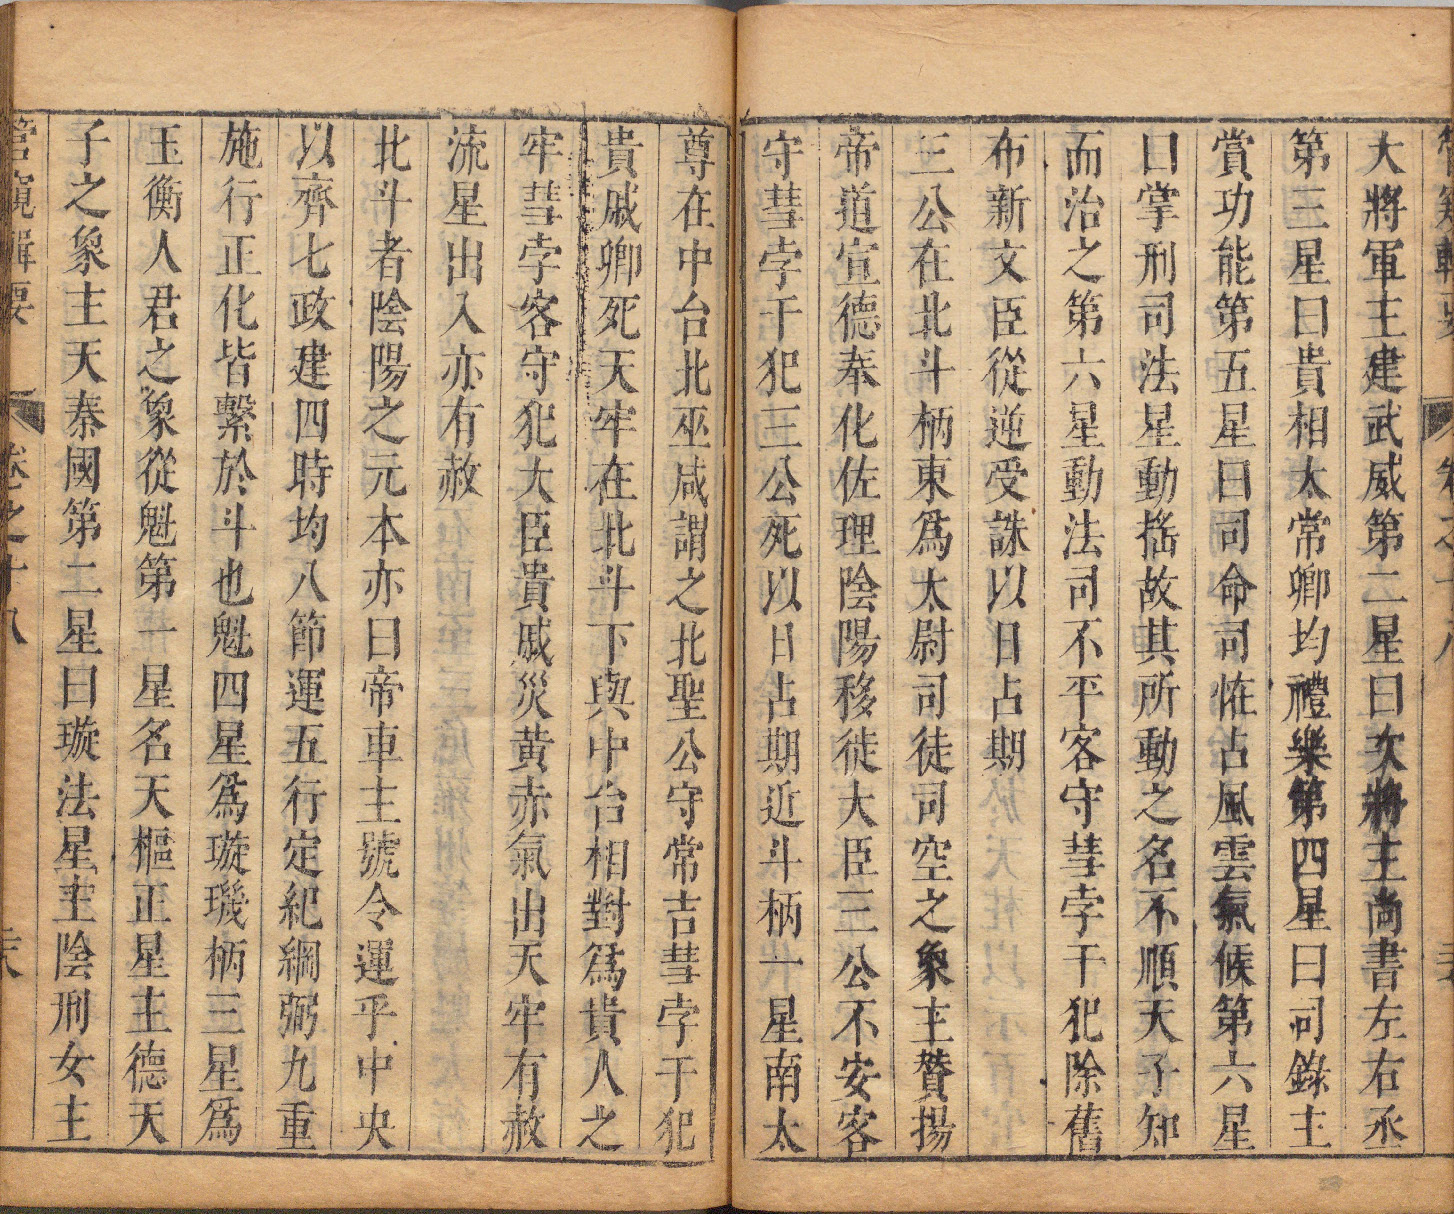 大將軍主建武威第二星曰次將主尚書左右丞
第三星曰貴相太常卿均禮樂第四星曰司錄主
賞功能第五星曰司命司恠占風雲氣候第六星
曰掌刑司法星動揺故其所動之名不順天子知
而治之第六星動法司不平客守彗孛干犯除舊
布新文臣從逆受誅以日占期
三公在北斗柄東爲太尉司徒司空之象主贊揚
帝道宣德奉化佐理陰陽移徒大臣三公不安客
守彗孛干犯三公死以日占期近斗柄一星南太
尊在中台北巫咸謂之北聖公守常吉彗孛干犯
貴戚卿死天牢在北斗下與中台相對爲貴人之
牢彗孛客守犯大臣貴戚災黃赤氣出天牢有赦
流星出入亦有赦
北斗者陰陽之元本亦曰帝車主號令運乎中央
以齊七政建四時均八節運五行定紀綱弼九重
施行正化皆繫於斗也魁四星爲璇璣柄三星爲
玉衡人君之象從魁第一星名天樞正星主德天
子之象主天秦國第二星曰璇法星主陰刑女主
管窺輯要 卷之十八 三六